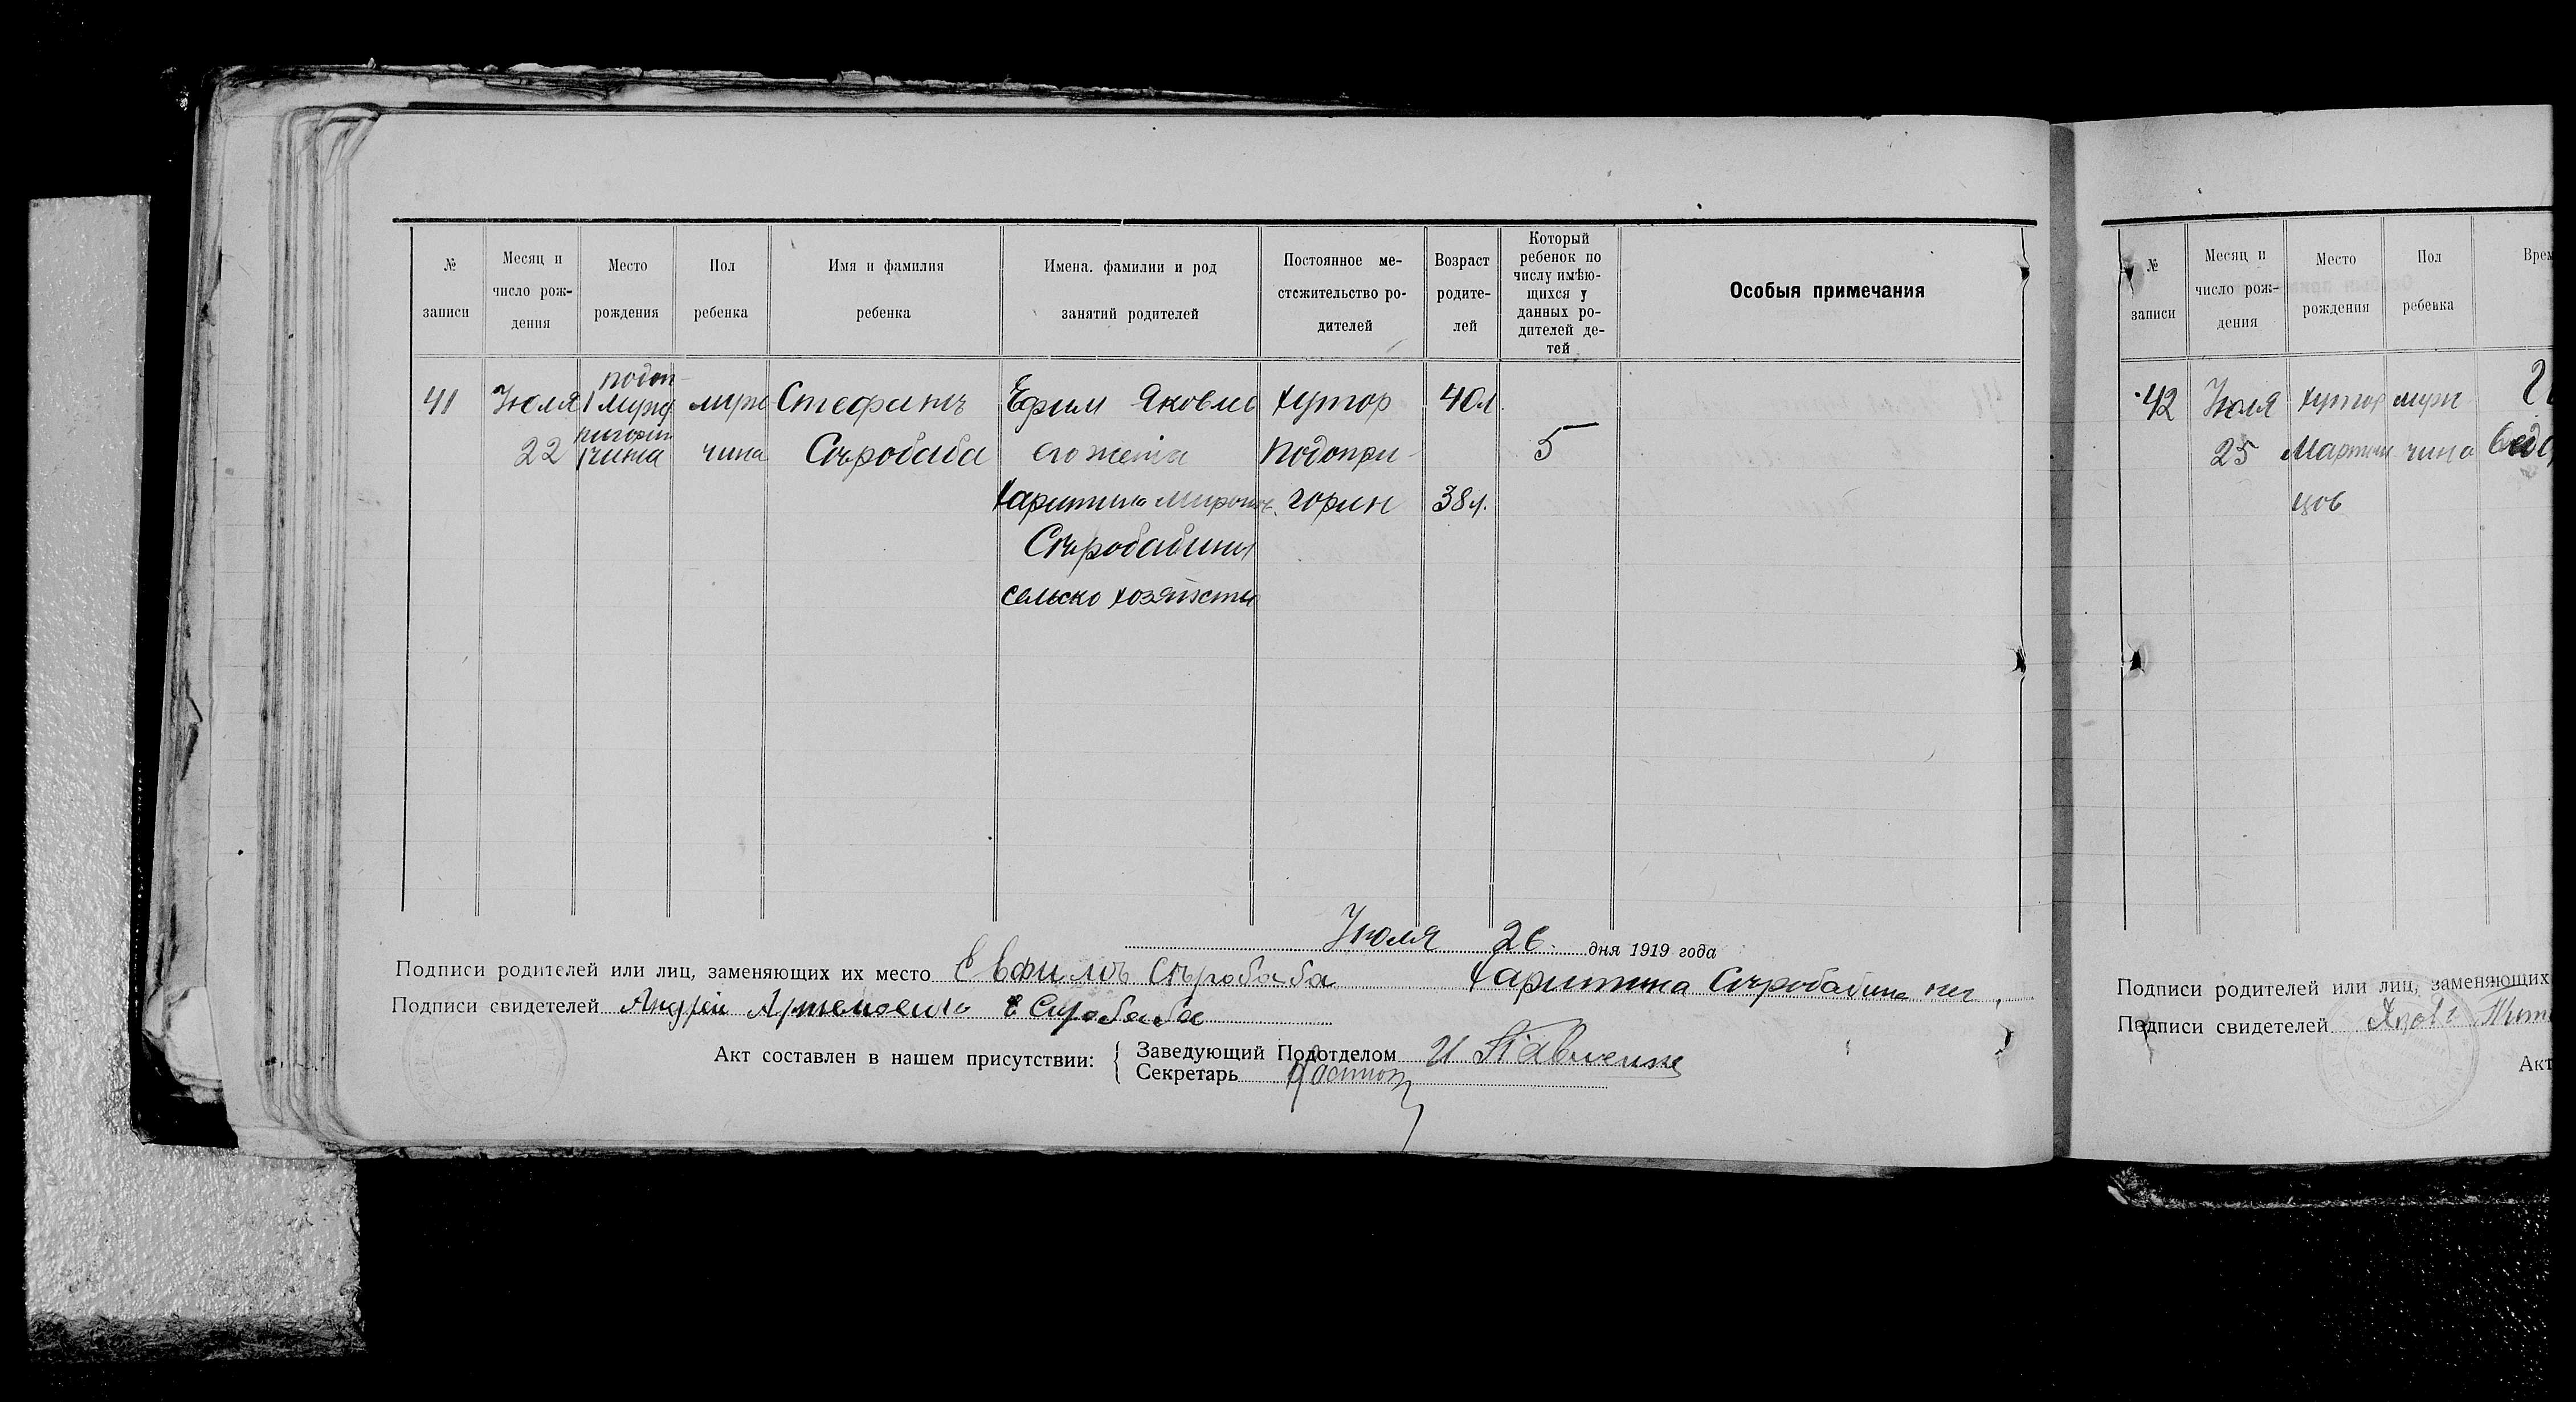 № записи
Месяц и число рож-дения
Место рождения
Пол ребенка
Имя и фамилия ребенка
Имена. фамилии и род занятий родителей
Постоянное ме-стожительство ро-дителей
Возраст родите-лей
Который ребенок по числу имѣю-щихся у данных ро-дителей де-тей
Особыя примечания
41 Июля муж Стефанъ Ефим Яковлев хутор 40л
22 чина Сыробаба его жена Подопри- 5
Харитина горин 38л.
Сыробабина
сельско хозяйство
Июля 26. дня 1919 года
Подписи родителей или лиц, заменяющих их место Евфимъ Сыробаба Харитина Сыробабина
Подписи свидетелей Андрей Артеменко Е Сыробаба
Акт составлен в нашем присутствии:
Заведующий Подотделом И
Секретарь
№ записи
Месяц и число рож-дения
Место рождения
Пол ребенка
Врем
42 Июля хутор муж
25 Мартын чина
цов
Подписи родителей или лиц, заменяющих
Подписи свидетелей
Акт